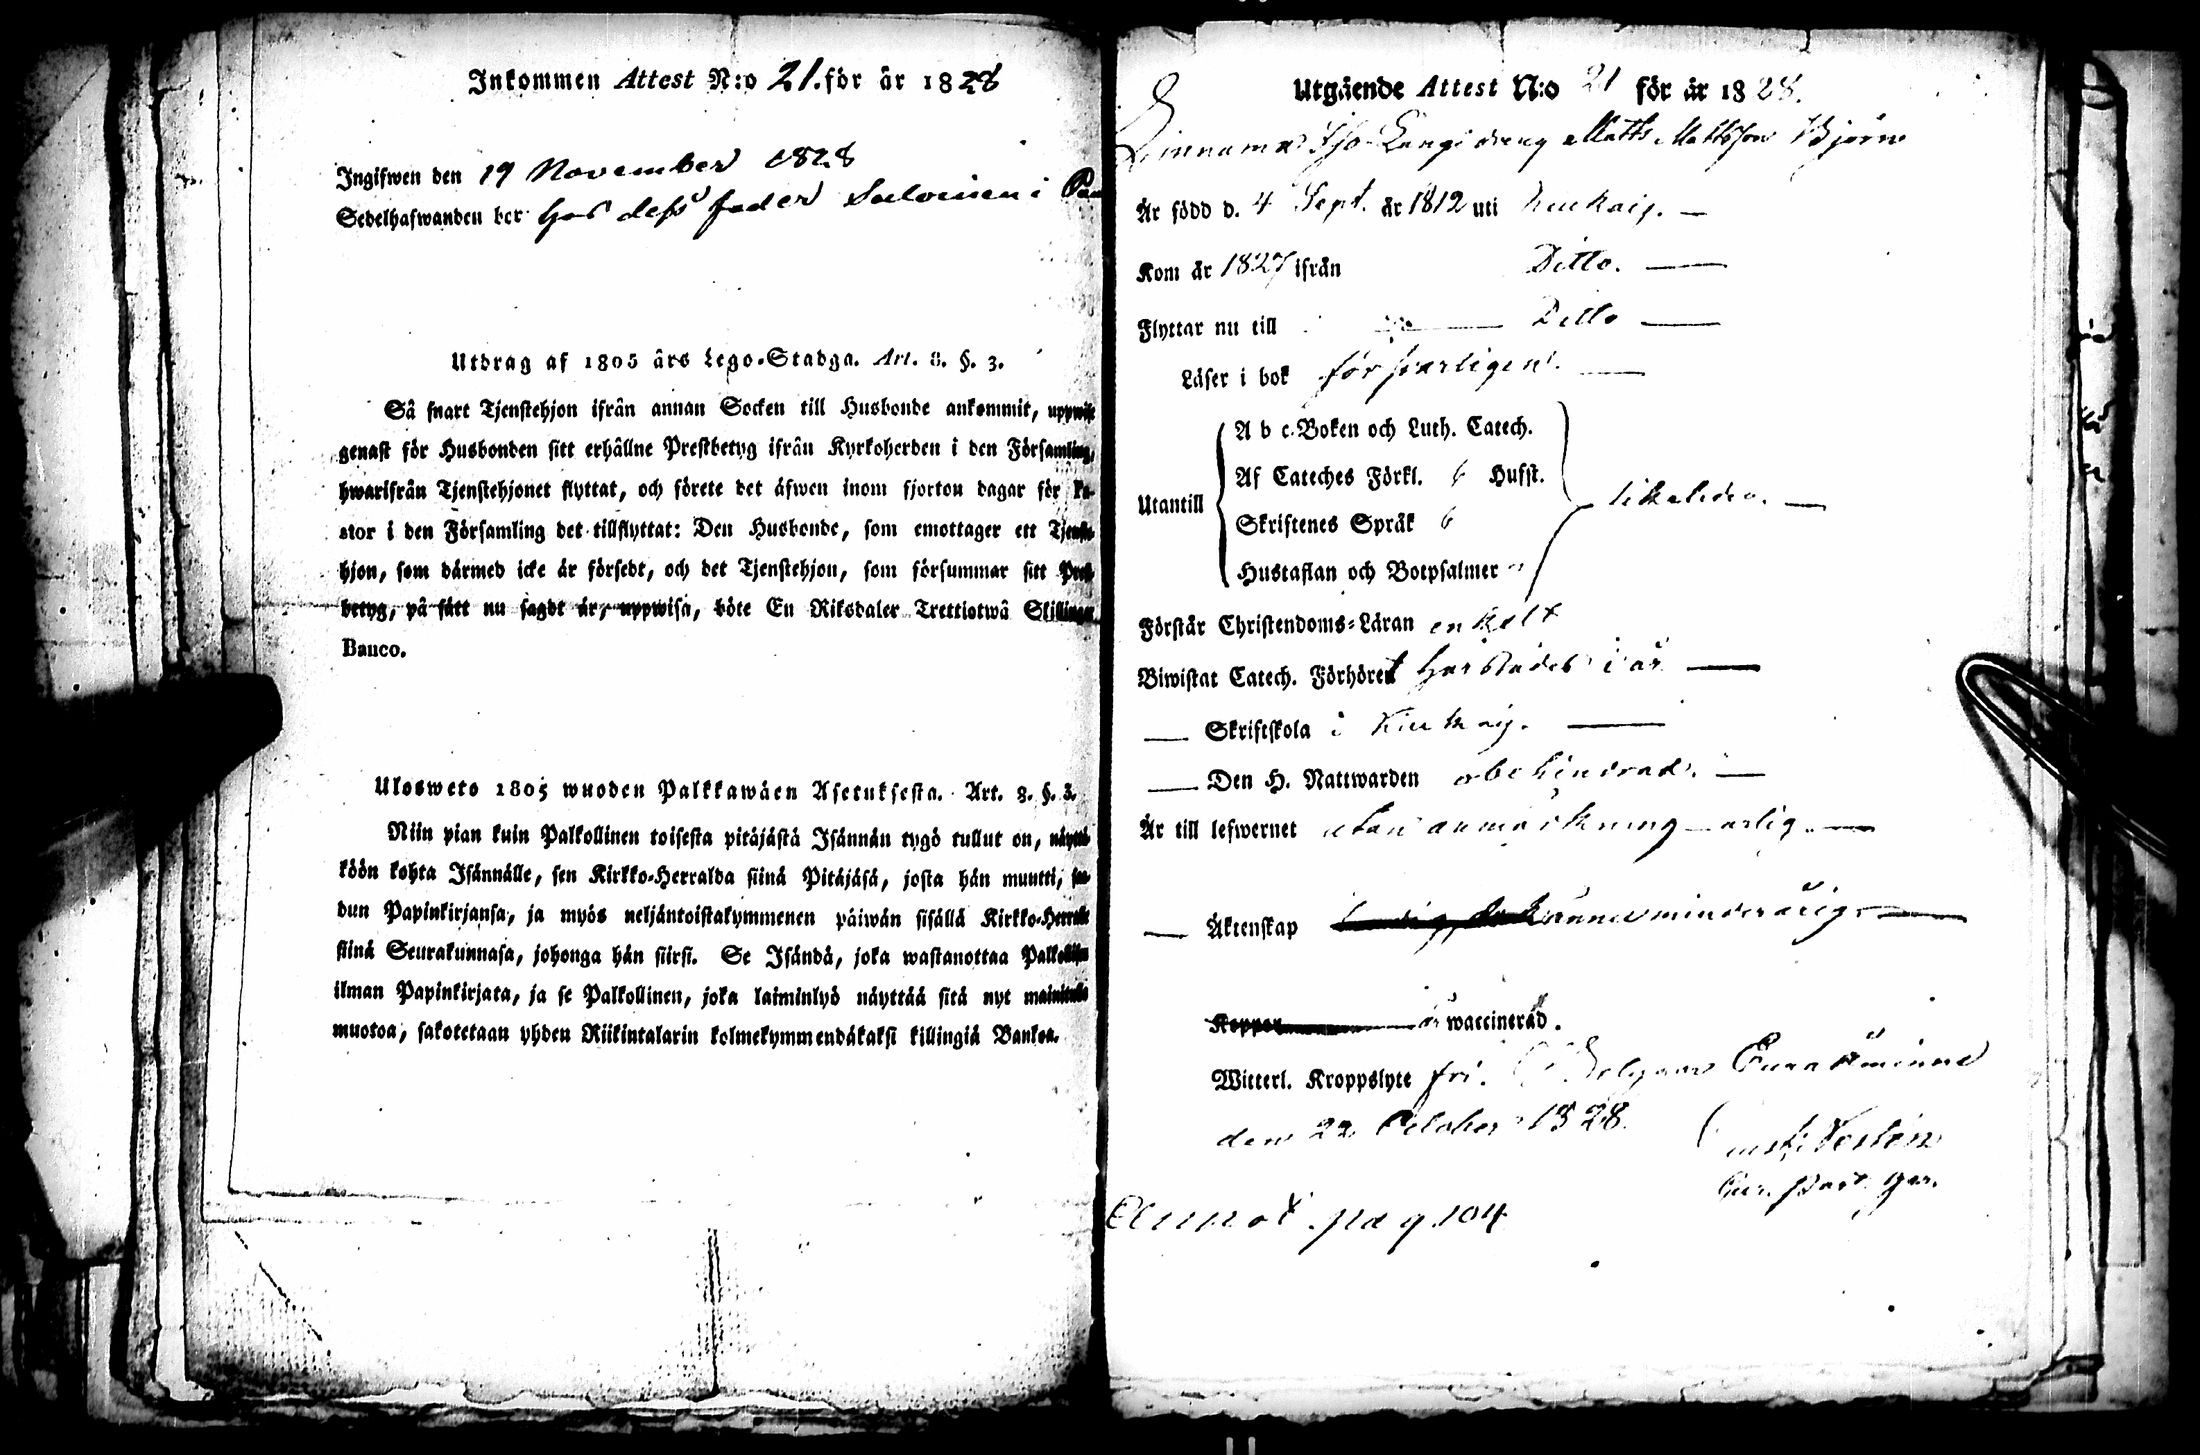 Inkommen Attest N:o 21. för år 1828
Ingifwen den 19 November 1828
Sedelhafwanden bor hos dess fader Salomien i
Utdrag af 1805 års Lego-Stadga. Art. 8. §. 3.
Så snart Tjenstehjon ifrån annan Socken till Husbonde ankommit, uppwise
genast för Husbonden sitt erhållne Prestbetyg ifrån Kyrkoherden i den Församling,
hwarifrån Tjenstehjonet flyttat, och förete det äfwen inom fjorton dagar för Pa-
stor i den Församling det tillflyttat: Den Husbonde, som emottager ett Tjenste-
hjon, som därmed icke är försedt, och det Tjenstehjon, som försummar sitt Prest-
betyg, på sätt nu sagdt är, uppwisa, böte En Riksdaler Trettiotwå Skillingar
Banco.
Ulosweto 1805 wuoden Palkkawäen Asetuksesta. Art. 8. §. 3.
Niin pian kuin Palkollinen toisesta pitäjästä Isännän tygö tullut on, näyttä-
köön kohta Isännälle, sen Kirkko-Herralda siinä Pitäjäsä, josta hän muutti, saa-
dun Papinkirjansa, ja myös neljäntoistakymmenen päiwän sisällä Kirkko-Herralle
siinä Seurakunnasa, johonga hän siirsi. Se Isändä, joka wastanottaa Palkollisen
ilman Papinkirjata, ja se Palkollinen, joka laiminlyö näyttää sitä nyt mainitulla
muotoa, sakotetaan yhden Riikintalarin kolmekymmendäkaksi killingiä Bankoa.
Utgående Attest N:o 21 för år 1828.
Dreng Matts Mattsson Björn
År född d. 4 Sept. år 1812 uti Kiukais. —
Kom år 1827 ifrån Ditto. —
Flyttar nu till — Ditto —
Läser i bok försvarligen. —
A b c-Boken och Luth. Catech.
Af Cateches Förkl. 6 Hufst.
Utantill likaledes. —
Skriftenes Språk 6
Hustaflan och Botpsalmer
Förstår Christendoms-Läran enkelt
Biwistat Catech. Förhöret härstädes i år —
— Skriftskola i Kiukais. —
— Den H. Nattwarden obehindrad. —
Är till lefwernet utan anmärkning — ärlig. —
— Äktenskap ännu minderårig. —
Koppor är waccinerad.
Witterl. Kroppslyte fri. Euraåminne
den 22 October 1828.
Annot. pag. 104